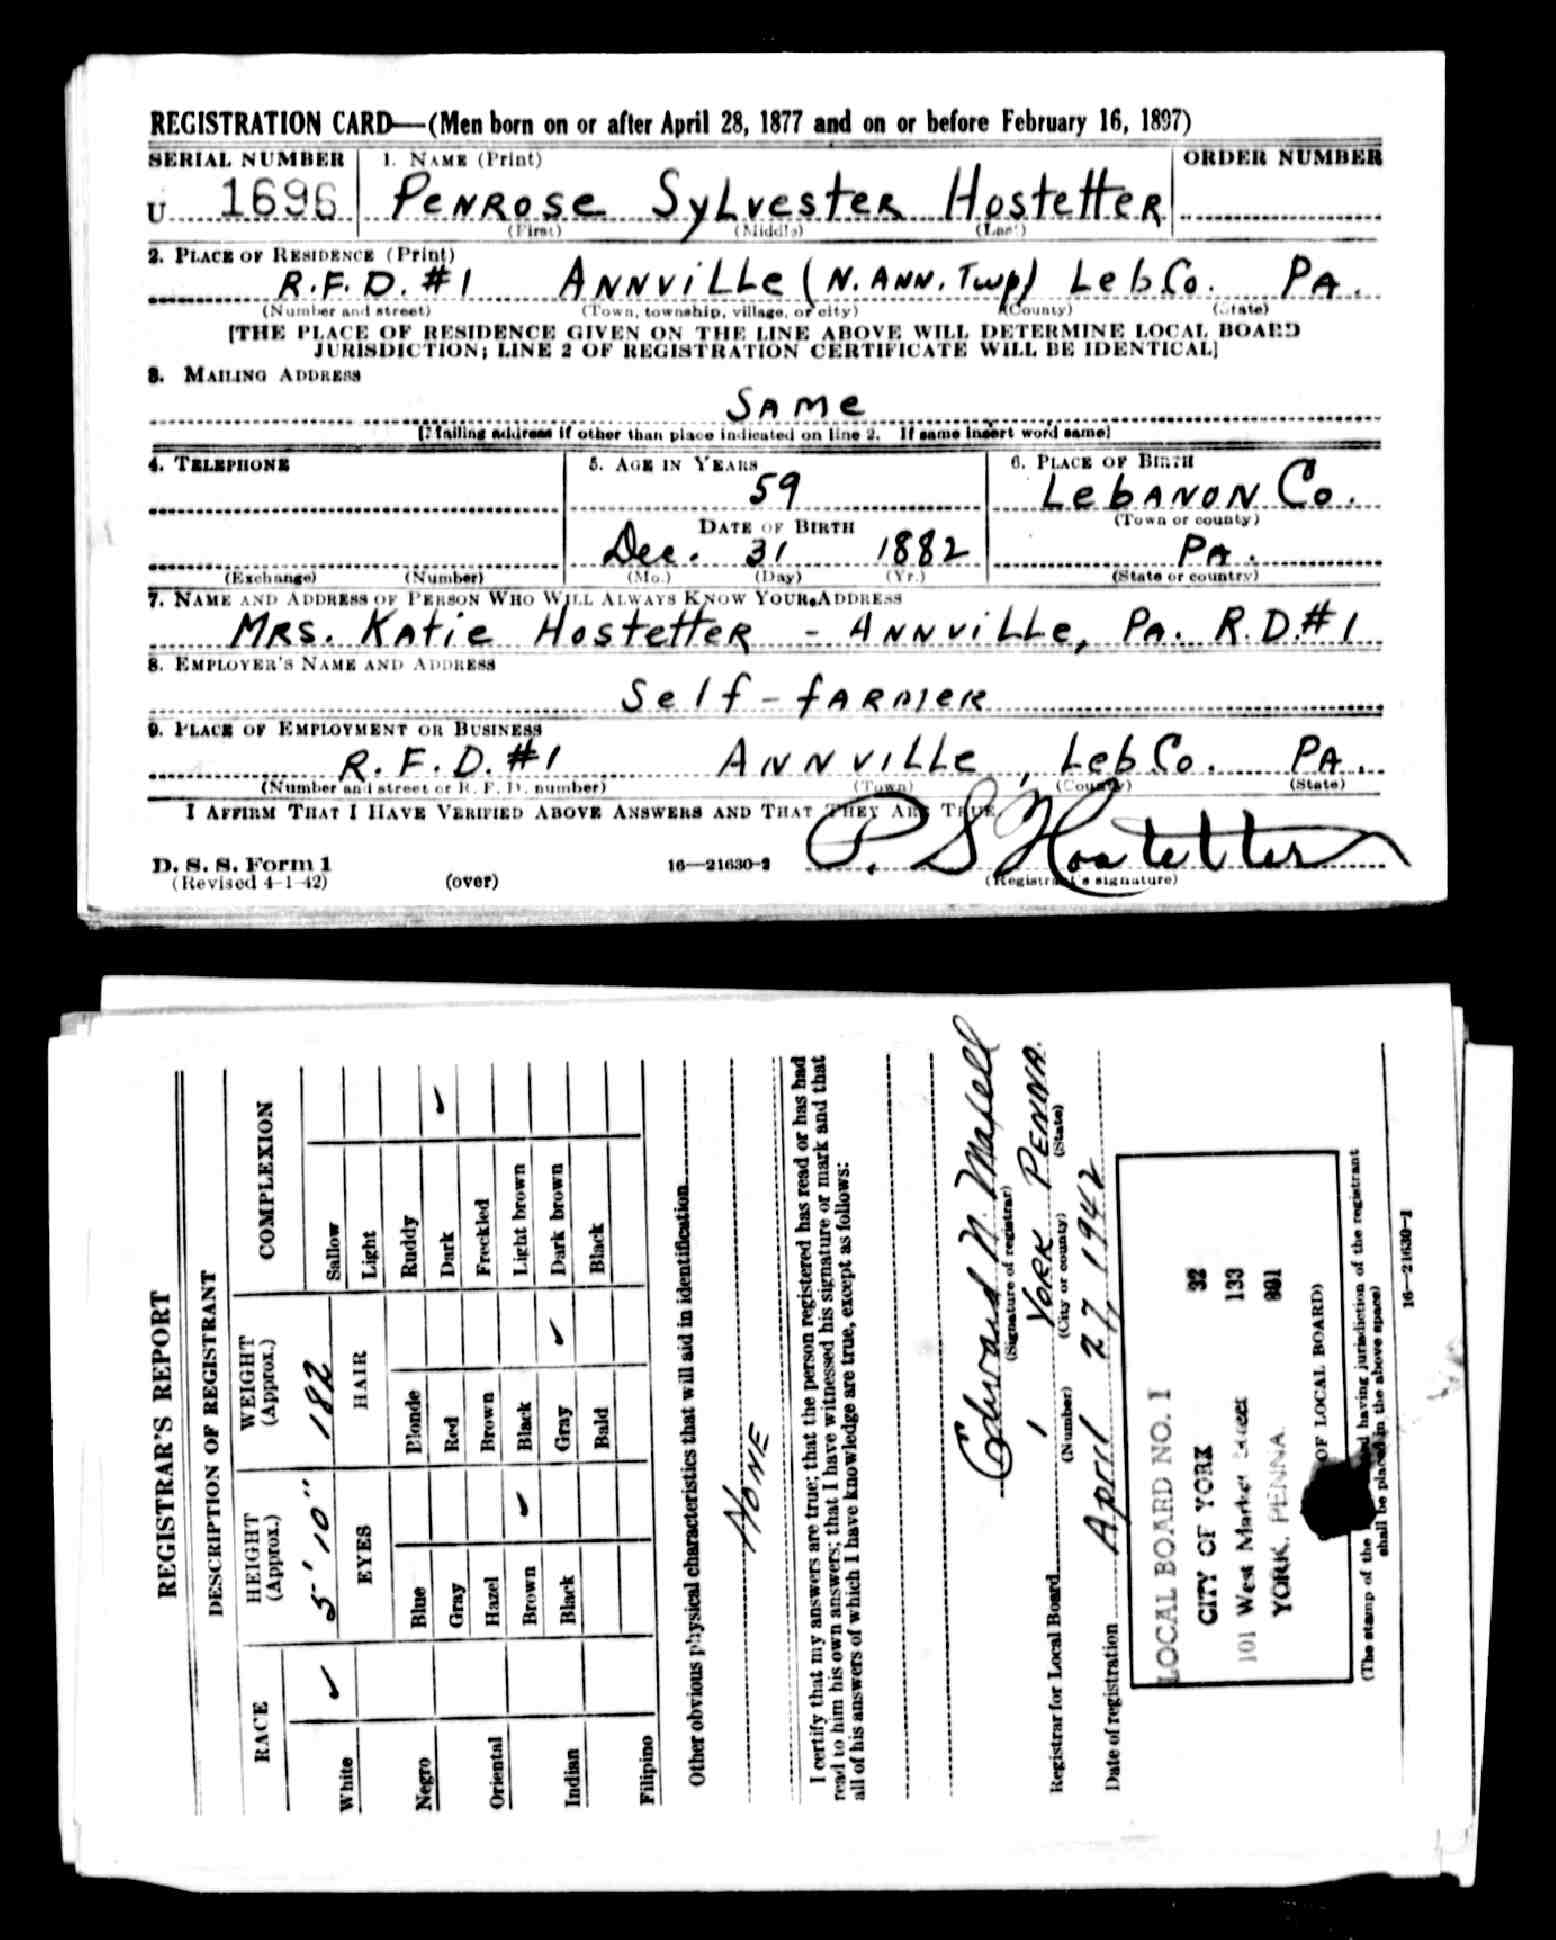 REGISTRATION CARD—(Men born on or after April 28, 1877 and on or before February 16, 1897)
SERIAL NUMBER 1. NAME (Print) ORDER NUMBER
U 1696 PENROSE SYLVESTER HOSTETTER
(First) (Middle) (Last)
2. PLACE OF RESIDENCE (Print)
R.F.D. #1 ANNVILLE (N. ANN. Twp) Leb Co. PA.
(Number and street) (Town, township, village, or city) (County) (State)
[THE PLACE OF RESIDENCE GIVEN ON THE LINE ABOVE WILL DETERMINE LOCAL BOARD
JURISDICTION; LINE 2 OF REGISTRATION CERTIFICATE WILL BE IDENTICAL]
3. MAILING ADDRESS
SAME
[Mailing address if other than place indicated on line 2. If same insert word same]
4. TELEPHONE 5. AGE IN YEARS 6. PLACE OF BIRTH
59 LEBANON Co.
DATE OF BIRTH (Town or county)
Dec. 31 1882 PA.
(Exchange) (Number) (Mo.) (Day) (Yr.) (State or country)
7. NAME AND ADDRESS OF PERSON WHO WILL ALWAYS KNOW YOUR ADDRESS
MRS. KATIE HOSTETTER - ANNVILLE, PA. R.D.#1
8. EMPLOYER'S NAME AND ADDRESS
Self - fARMER
9. PLACE OF EMPLOYMENT OR BUSINESS
R.F.D.#1 ANNVILLE, Leb Co. PA.
(Number and street or R. F. D. number) (Town) (County) (State)
I AFFIRM THAT I HAVE VERIFIED ABOVE ANSWERS AND THAT THEY ARE TRUE
P. S Hostetter
D. S. S. Form 1
(Revised 4-1-42) (over) 16—21630-2 (Registrant's signature)
REGISTRAR'S REPORT
DESCRIPTION OF REGISTRANT
RACE HEIGHT (Approx.) WEIGHT (Approx.) COMPLEXION
5' 10" 182
White ✓
Negro
Oriental
Indian
Filipino
EYES
Blue
Gray
Hazel
Brown ✓
Black
HAIR
Blonde
Red
Brown
Black
Gray ✓
Bald
Sallow
Light
Ruddy
Dark ✓
Freckled
Light brown
Dark brown
Black
Other obvious physical characteristics that will aid in identification
NONE
I certify that my answers are true; that the person registered has read or has had
read to him his own answers; that I have witnessed his signature or mark and that
all of his answers of which I have knowledge are true, except as follows:
Edward N.
(Signature of registrar)
Registrar for Local Board 1 YORK PENNA.
(Number) (City or county) (State)
Date of registration April 27, 1942
LOCAL BOARD NO. 1
CITY OF YORK 32
101 West Market Street 133
YORK, PENNA.
OF LOCAL BOARD)
(The stamp of the having jurisdiction of the registrant
shall be placed in the above space)
16—21630-2